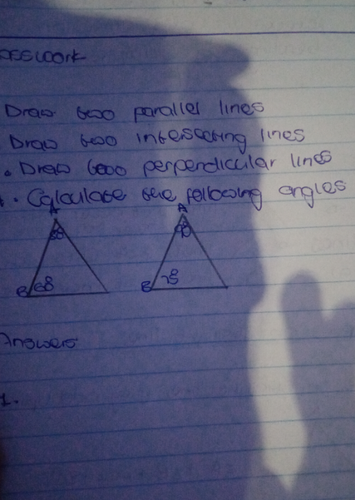 Draw two parallel lines
Draw two intersecting lines
. Draw two perpendicular lines
. Calculate the following angles
A A
B B
Answers
1.